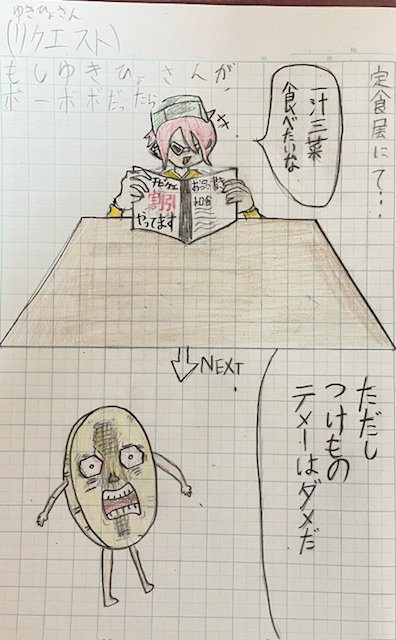 ゆきひょさん
(リクエスト)
もしゆきひょさんが、
ボーボボだったら
定食屋にて・・・
一汁三菜
食べたいな
割引
やってます
お品書き
和食
NEXT
ただし
つけもの
テメーはダメだ